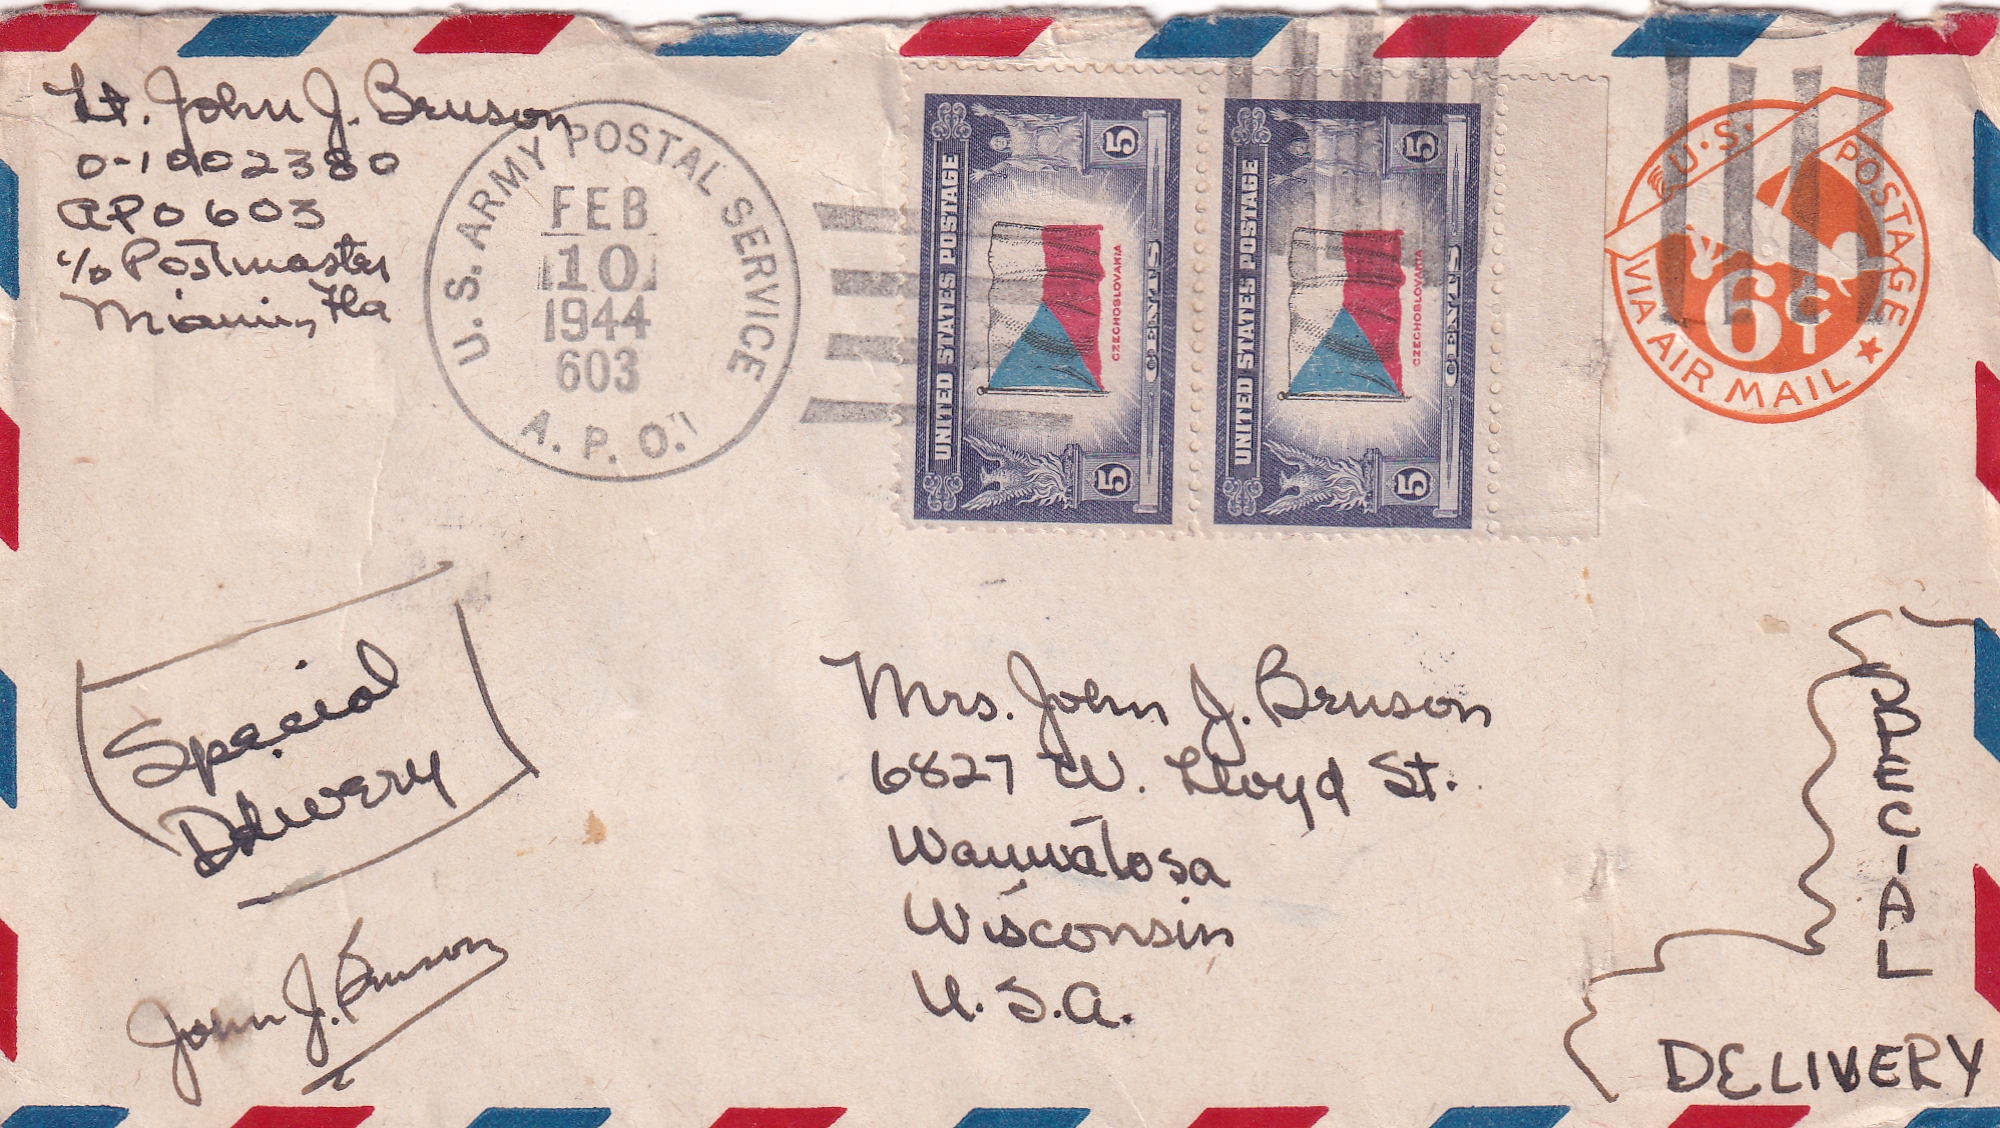 Lt. John J. Bruson
0-1002380
APO 603
c/o Postmaster
Miami, Fla
U. S. ARMY POSTAL SERVICE
FEB
10
1944
603
A. P. O.
UNITED STATES POSTAGE
CZECHOSLOVAKIA
5 CENTS 5
UNITED STATES POSTAGE
CZECHOSLOVAKIA
5 CENTS 5
U.S. POSTAGE
6¢
VIA AIR MAIL
Special
Delivery
John J. Bruson
Mrs. John J. Bruson
6827 W. Lloyd St.
Wauwatosa
Wisconsin
U.S.A.
SPECIAL
DELIVERY